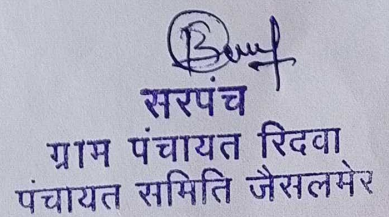 सरपंच
ग्राम पंचायत रिदवा
पंचायत समिति जैसलमेर